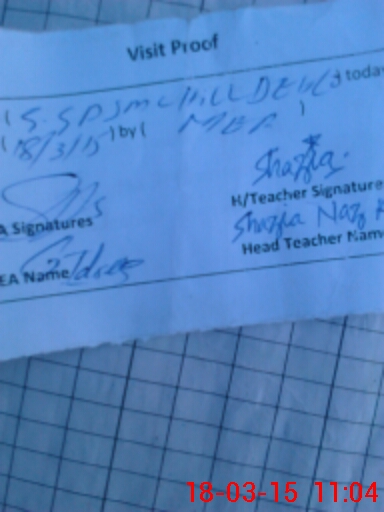 Visit Proof
) today
(18/3/15) by ( MEA )
Shazia
A Signatures
H/Teacher Signature
Shazia Naz
EA Name
Head Teacher Name
18-03-15 11:04